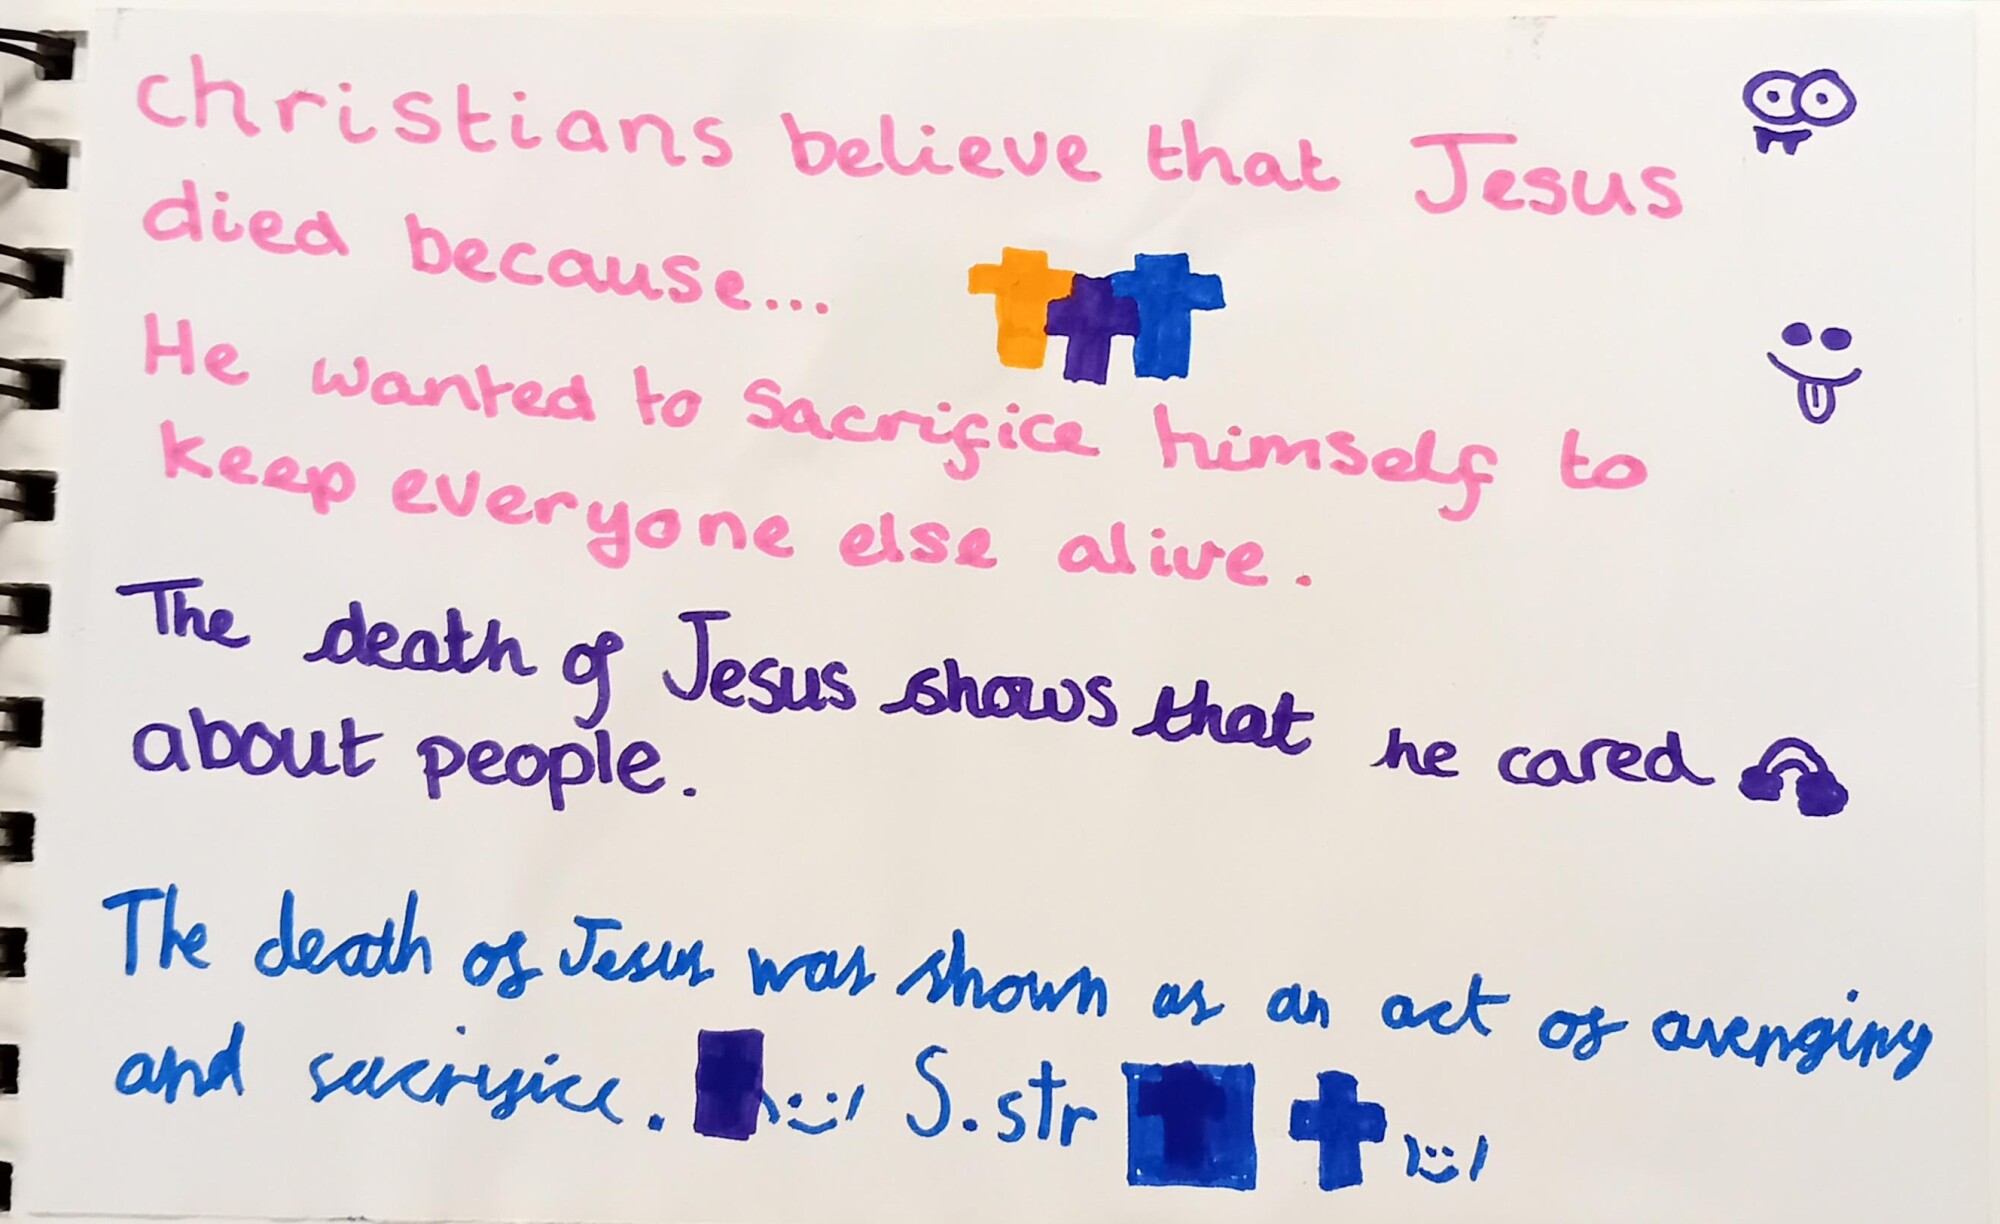 christians believe that Jesus
died because...
He wanted to sacrifice himself to
keep everyone else alive.
The death of Jesus shows that he cared
about people.
The death of Jesus was shown as an act of avenging
and sacrifice. S.str